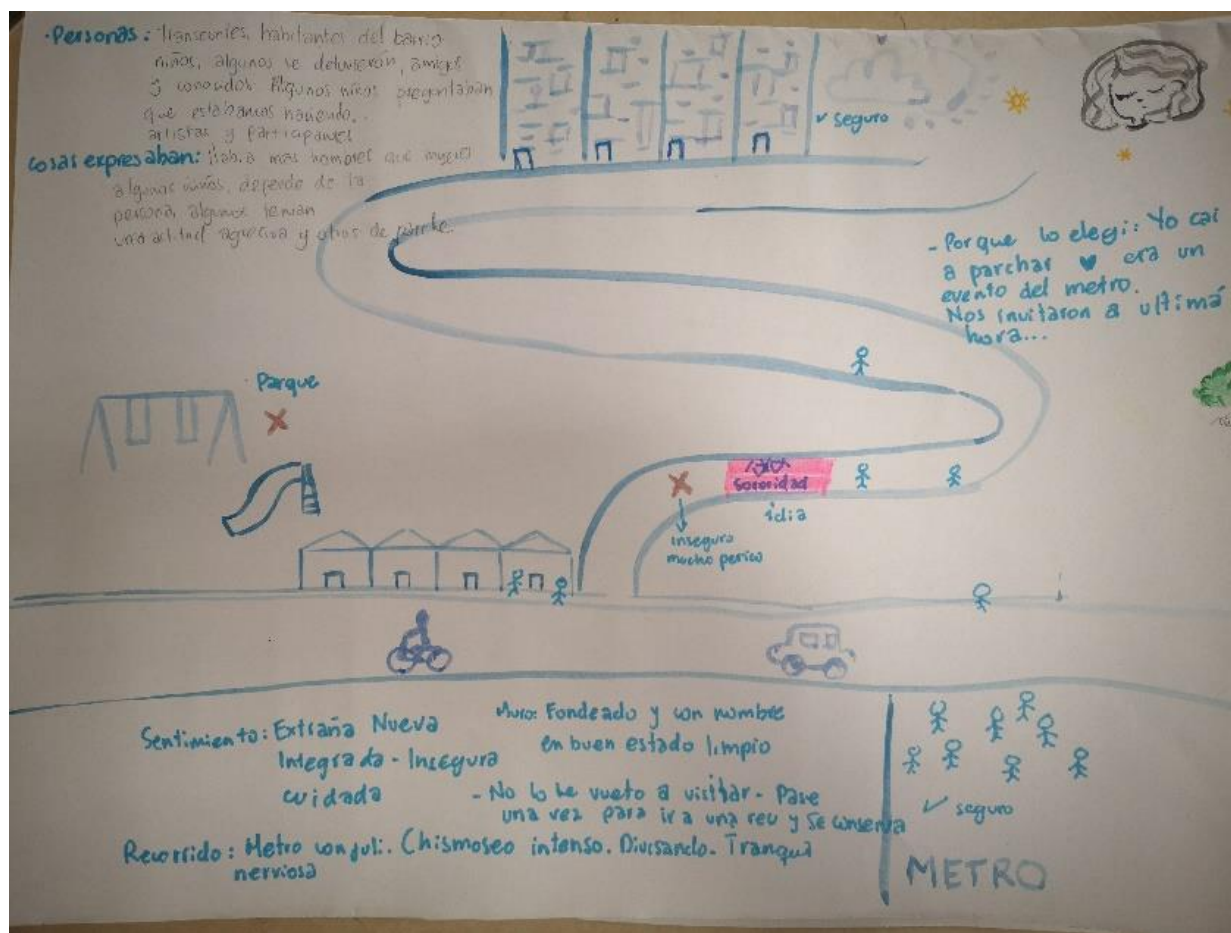 ·Personas: Transeuntes, habitantes del barrio
niños, algunos se detuvieron, amigos
y conocidos Algunos niños preguntaban
que estabamos haciendo..
artistas y Participantes
cosas expresaban: Habia mas hombres que
algunas niños, depende de la
persona, algunos tenian
una actitud agresiva y otros de parche.
✓ seguro
- Porque lo elegi: Yo cai
a parchar ♥ era un
evento del metro.
Nos invitaron a ultima
hora...
Parque
Sororidad
idia
insegura
mucho perico
Sentimiento: Extraña Nueva
Integrada - Insegura
cuidada
Muro: Fondeado y con nombre
en buen estado limpio
- No lo he vuelto a visitar - Pase
una vez para ir a una reu y se conserva
Recorrido: Metro con juli. Chismoseo intenso. Tranqui
nerviosa
✓ seguro
METRO